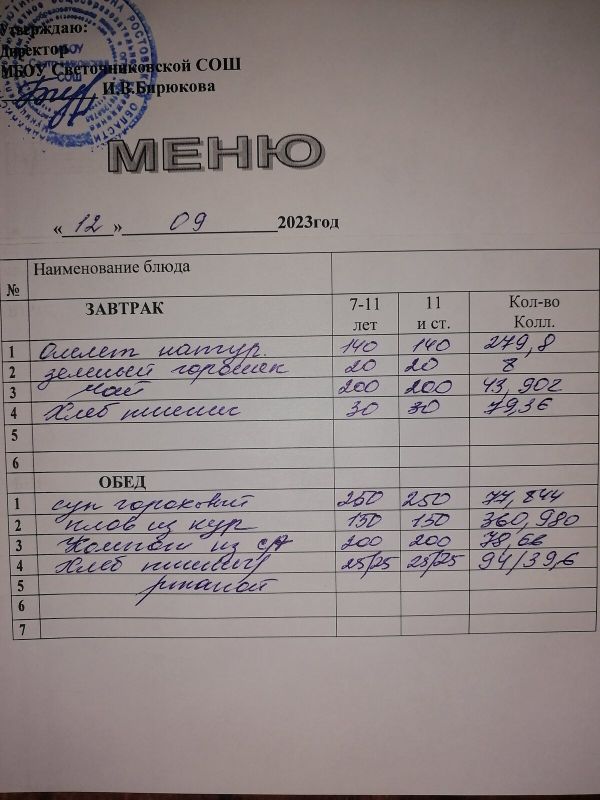 Утверждаю:
Директор
МБОУ Светочниковской СОШ
И.В.Бирюкова
МЕНЮ
« 12 » 09 2023год
№ Наименование блюда
ЗАВТРАК 7-11 лет 11 и ст. Кол-во Колл.
1 Омлет натур. 140 140 279,8
2 зеленый горошек 20 20 8
3 чай 200 200 43,902
4 Хлеб пшенич 30 30 79,36
5
6
ОБЕД
1 суп гороховый 250 250 77,844
2 плов из кур 150 150 360,980
3 Компот из с/ф 200 200 78,66
4 Хлеб пшенич/ 25/25 25/25 94/39,6
5 ржаной
6
7